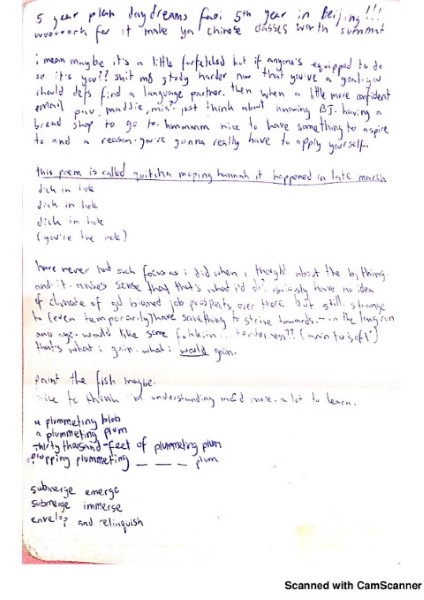 5 year plan daydreams 5th year in Beijing!!!
for it make ya chinese classes worth summat
i mean maybe it's a little farfetched but if anyone's equipped to do
so it's you?? shit m8 study harder now that you've a goal. you
should defs find a language partner. then when a little more confident
email maddie, just think about knowing BJ. having a
bread shop to go to. hmmmmm nice to have something to aspire
to and a reason. you're gonna really have to apply yourself.
this poem is called quitcha moping hannah it happened in late march
dick in hole
dick in hole
dick in hole
(you're the hole)
have never had such focus as i did when i thought about the bj thing
and it makes sense that that's what i'd do. obviously have no idea
of climate of job prospects over there but still. strange
to (even temporarily) have something to strive towards. in the long run
would like some
that's what i gain. what i would gain.
paint the fish maybe.
nice to think i'm understanding more. a lot to learn.
a plummeting blob
a plummeting plum
thirty thousand-feet of plummeting plum
plummeting _ _ _ plum
submerge emerge
submerge immerse
envelop and relinquish
Scanned with CamScanner